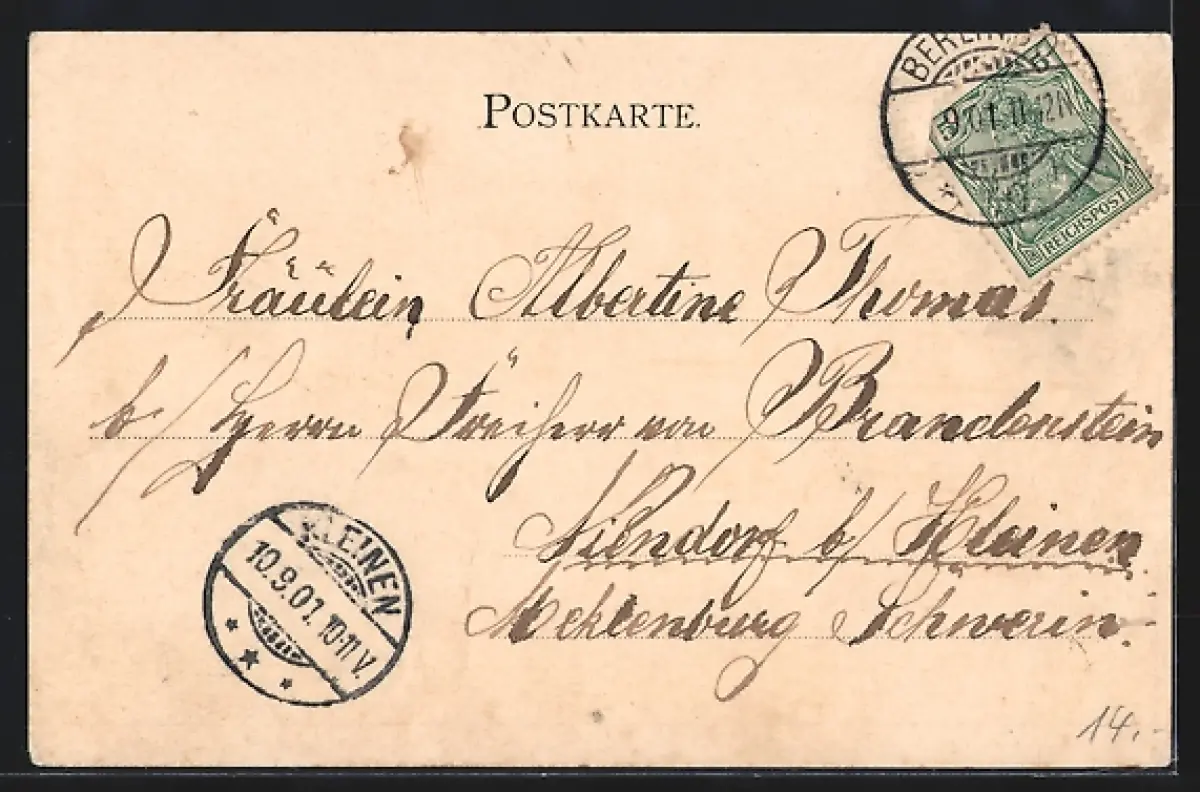 BERLIN
POSTKARTE.
REICHSPOST
Fräulein Albertine Thomas.
b/ Herrn Freiherr von Brandenstein
Niendorf b/ Kleinen
Meklenburg Schwerin.
KLEINEN
10.9.01. 10-11 V.
14.-